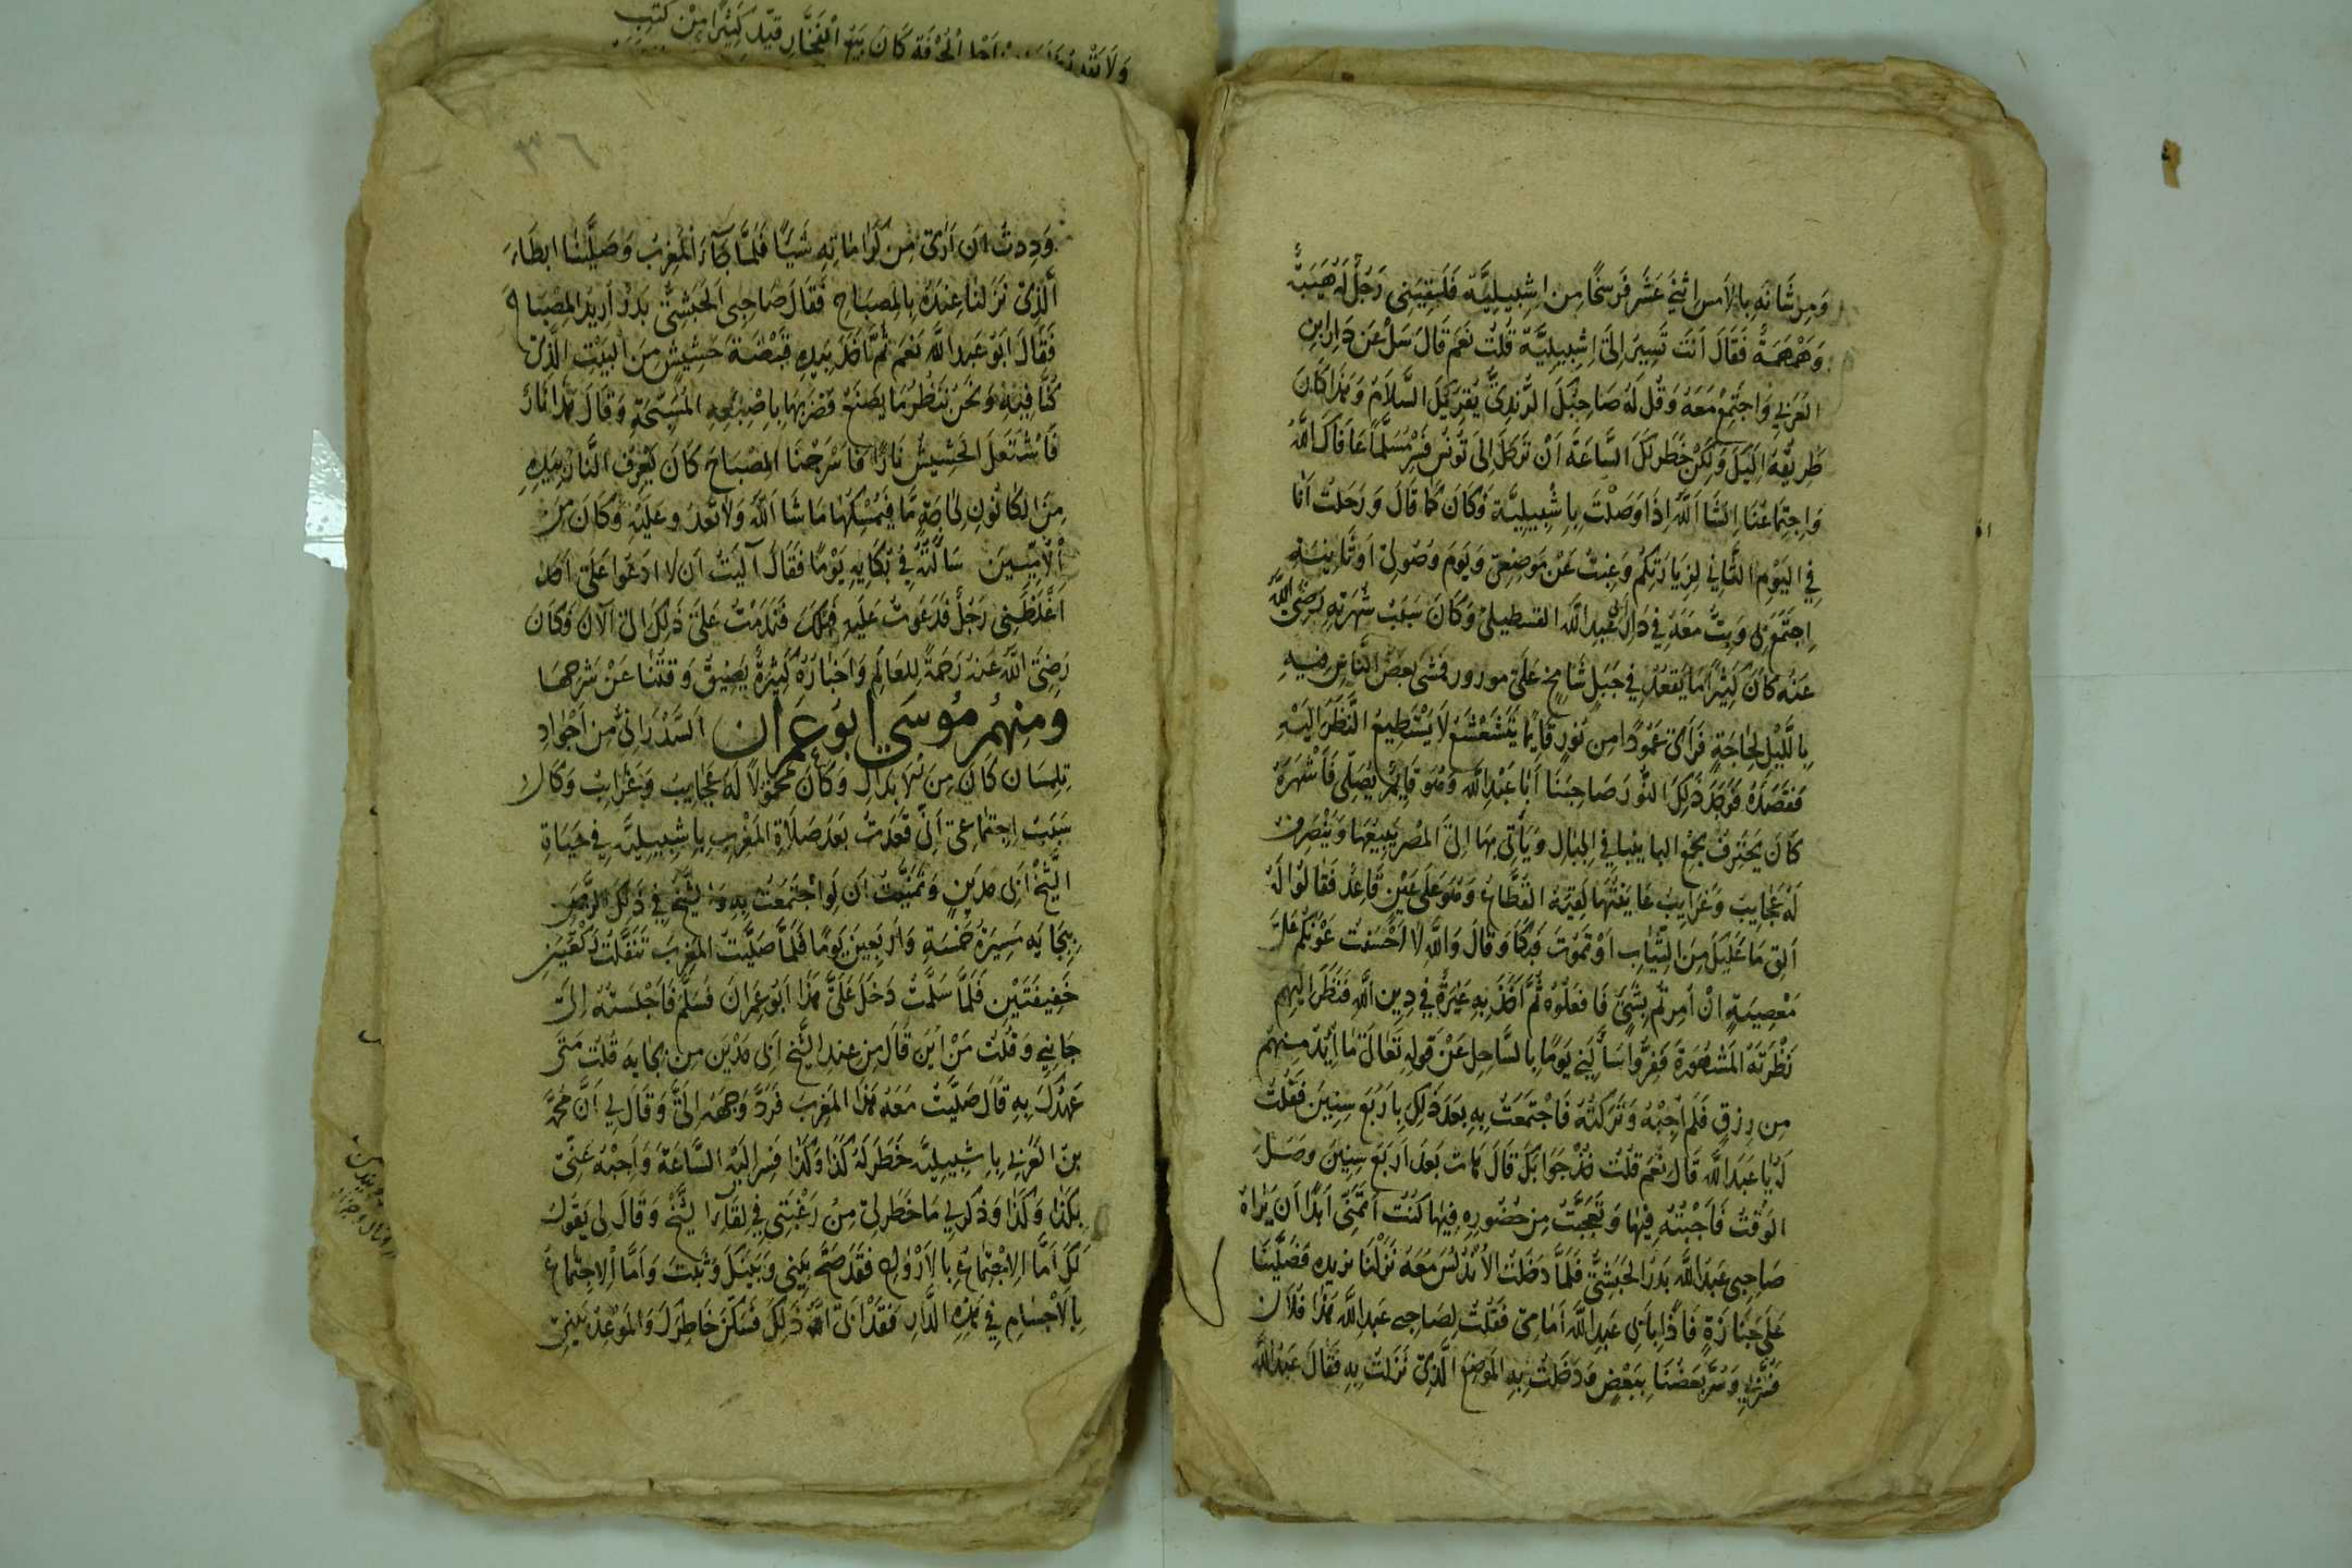 وَمِرشَانَه بِالاَمس اثْنَىْ عَشَرَ فَرسَخًا مِن اِشْبِيلِيَّه فَلَقِيَنِى رَجُلٌ لَهُ هَيبَةٌ
وَهَمْهَمَةٌ فَقَالَ اَنْتَ تَسِيرُ اِلىَ اِشْبِيلِيَّة قُلتُ نَعَم قَالَ سَلْ عَن دَارِ ابنِ
العَرَبي وَاجتَمِعْ مَعَهُ وَقُل لَهُ صَاحِبُكَ الرُّندِىُّ يُقرِيكَ السَّلَامَ وَهَذَا كَانَ
طَرِيقُهُ اِلَيكَ وَلكِنْ خَطَر لَكَ السَّاعَةَ اَنْ تَرحَلَ اِلىَ تُونُسَ فَسِرْ مُسَلَّمًا عَافَاكَ اللَّهُ
وَاجِتِمَاعُنَا اِنشَا اَللَّهُ اِذَا وَصَلْتَ بِاِشْبِيلِيَّة وَكَانَ كَمَا قَالَ وَرَحَلتُ اَنَا
فِي اليَوْمِ الثَّانِي لِزِيَارَتِكُم وَغِبْتُ عَنْ مَوضِعِى وَيَومَ وُصُولِىْ اَوثَانِيهِ
اِجتَمَعَ بِى وَبِتُّ مَعَهُ فِي دَارِ ابى عَبدِ اللَّهِ القسطيلى وَكَانَ سَبَبُ شُهرَتِهِ رَضِىَ اللَّهُ
عَنهُ كَانَ كَثِيرًا مَا يَقعُدُ فِي جَبَلٍ شَامِخٍ عَلَىَ مورور فَمَشَى بَعضُ النَّاسِ فِيهِ
بِاللَّيْلِ لِحَاجَةٍ فَرَأَىَ عَمُودًا مِن نُورٍ قَايمًا يَتَشَعْشَعُ لَا يَسْتَطِيعُ النَّظَرَ اِلَيْهِ
فَقَصَدَهُ فَوَجَدَ ذَلِكَ النُّورَ صَاحِبَنَا اَبَا عَبْدِ اللَّهِ وَهُوَ قَايِمٌ يُصَلِّى فَاَشْهَرَهُ
كَانَ يَحتَرِفُ بِجَمْعِ البابينبا فِي الجِبَالِ وَيَأتِى بِهَا اِلىَ المِصْرِ يَبِيعُهَا وَيَنْصَرِف
لَهُ عَجَايِبُ وَغَرَايِبُ عَايَنتُهَا لَقِيَهُ القُطَّاعُ وَهُوَ عَلىَ عَيْنٍ قَاعِدٌ فَقَالُوا لَهُ
اَلقِ مَا عَلَيكَ مِنَ الثِّيَابِ اَوْ تَمُوْتَ فَبَكَا وَقَالَ وَاللَّهِ لَا اَحْسَنتُ عَوْنَكُم عَلَى
مَعْصِيَةٍ اِنْ اُمِرتُم بِشَىْءٍ فَافعَلُوهُ ثُمَّ اَخَذَ بِهِ غَيْرَةٌ فِي دِينِ اللَّهِ فَنَظَرَ اِلَيهِم
نَظْرَتَهُ المَشْهُورَةَ فَفَرُّوا سَاَلَنِى يَومًا بِالسَّاحِلِ عَنْ قَولِهِ تَعَالىَ مَا اُرِيْدُ مِنهُم
مِن رِزقٍ فَلَم اُجِبْهُ وَتَرَكتُهُ فَاجْتَمَعَتُ بِهِ بَعدَ ذَلِكَ بِاَرْبَع سِنِينَ فَقُلتُ
لَهُ يَا عَبدَ اللَّهِ قَالَ نَعَم قُلتُ خُذْ جَوَابَكَ قَالَ هَات بَعدَ اَربَعِ سِنِينَ وَصَلَ
الوَقتُ فَاَجْبتُهُ فِيهَا وَتَعَجَّبتُ مِن حُضُورِهِ فِيهَا كُنتُ اَتَمَنَّى اَبَدًا اَن يَرَاهُ
صَاحِبى عَبدَ اللَّهِ بَدرُ الحَبَشِىُّ فَلَمَّا دَخَلْتُ الاُنْدُلُسَ مَعَهُ نَزَلْنَا بِرنده فَصَلَّيْنَا
عَلىَ جَنَازَةٍ فَاِذَا بِاَبِى عَبدِ اللَّهِ اَمَامِى فَقُلتُ لِصَاحِبى عَبدِ اللَّهِ هَذَا فُلَانٌ
فَسُرَّبِي وَسُرَّ بَعضُنَا بِبَعْضٍ وَدَخَلتُ بِهِ المَوْضِعَ الَّذِىْ نَزَلتُ بِهِ فَقَالَ عَبدُ اللَّهِ
٣٦
وَدِدتُ اَن اَرَىَ مِن كَرَامَاتِهِ شَيًا فَلَمَّا جَآءَ المَغْرِبُ وَصَلَّيْنَا ابطَاءَ
اَلَّذِىْ نَزَلنَا عِندَهُ بِالمِصبَاحِ فَقَالَ صَاحِبِى الحَبَشِىُّ بَدْرٌ اُرِيدُ المِصْبَاحَ
فَقَالَ اَبُو عَبدِ اللَّه نَعَم ثُمَّ اَخَذَ بِيَدِهِ قَبْضَةَ حَشِيشٍ مِنَ البَيْتِ الَّذِىْ
كُنَّا فِيهِ وَنَحْنُ نَنْظُرُ مَا يَصْنَعُ فَضَرَبَهَا بِاِصْبَعِهِ المُسَبِّحَةِ وَقَالَ هَذَا نَارٌ
فَاشْتَعَلَ الحَشِيشُ نَارًا فَاَسْرَجْنَا المِصْبَاحَ كَانَ يَغرِفُ النَّارَ بِيَدِهِ
مِنَ الكَانُونِ لِحَاجَةٍ مَّا فَيُمْسِكُهَا مَا شَا اللَّهُ وَلَا تَعْدُو عَلَيْهِ وَكَانَ مِنَ
الْاُمِّيِّينَ سَاَلْتُهُ فِي بُكَايِهِ يَوْمًا فَقَالَ آلَيتُ اَن لَا ادعُوا عَلَىَ اَحَدٍ
اَغْلَظَنِى رَجُلٌ فَدَعَوتُ عَلَيهِ فَهَلَكَ فَنَدِمْتُ عَلىَ ذَلِكَ اِلىَ الآنَ وَكَانَ
رَضِىَ اللَّهُ عَنهُ رَحمَةً لِلعَالَمِ وَاَخبَارُهُ كَثِيرَةٌ يَضِيقُ وَقتُنَا عَنْ شَرحِهَا
ومِنهُم مُوسَى ابُو عِمرَان اَلسَّدَرَانىُّ مِن اَجْوَادِ
تِلِمسَان كَانَ مِنَ الاَبدَالِ وَكَانَ مَحمُولًا لَهُ عَجَايِبَ وَغَرَايِبُ وَكَانَ
سَبَبُ اجتِمَاعِى اَنِّى قَعَدتُ بَعدَ صَلَاةِ المَغْرِبِ بِاِشْبِيلِيَّه فِي حَيَاةِ
الشَّيْخِ اَبِى مَديَنٍ وَتَمَنَّيتُ اَن لَوِ اجْتَمَعتُ بِهِ وَالشَّيْخُ فِي ذَلِكَ الوَقت
بِبِجَايَه مَسِيرَةُ خَمْسَةٍ وَاَربَعِينَ يَومًا فَلَمَّا صَلَّيتُ المَغرِبَ تَنَفَّلتُ رَكْعَتَيْنِ
خَفِيفَتَيْنِ فَلَمَّا سَلَّمتُ دَخَلَ عَلَىَّ هَذَا اَبُو عِمرَانَ فَسَلَّمَ فَاَجْلَستُهُ اِلىَ
جَانِبِى وَقُلتُ مَنْ اَينَ قَالَ مِن عِندِ الشَّيْخِ اَبِى مَدْيَن مِن بِجايهَ قُلتُ مَتَى
عَهدُكَ بِهِ قَالَ صَلَّيتُ مَعَهُ هَذَا المَغرِبَ فَرَدَّ وَجهَهُ اِلَىَّ وَقَالَ لِي اَنَّ مُحَمَّدَ
بنَ العَرَبي بِاِشْبِيلِيَّه خَطَرَ لَهُ كَذَا وَكَذَا فَسِر اِلَيْهِ السَّاعَةَ وَاَخبِرْهُ عَنِّى
بِكَذَا وَكَذَا وَذَكَر لِي مَا خَطَر لِىَ مِنْ رَغْبَتِى فِي لِقَآءِ الشَّيْخِ وَقَالَ لِى يَقُولُ
لَكَ اَمَّا الاِجْتِمَاعُ بِالاَرْوَاحِ فَقَدَ صَحَّ بَيْنِى وَبَيْنَكَ وَثَبتَ وَاَمَّا الاِجتِمَاعُ
بِالاَجْسَامِ فِي هَذِهِ الدَّارِ فَقَدْ اَبىَ اللَّهُ ذَلِكَ فَسَكِّنْ خَاطِرَكَ وَالمَوْعِدُ بَينِى